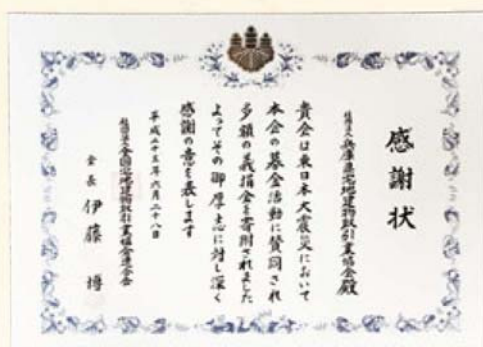 感謝状
社団法人兵庫県宅地建物取引業協会殿
貴会は東日本大震災において
本会の募金活動に賛同され
多額の義捐金を寄附されました
よってその御厚志に対し深く
感謝の意を表します
平成二十三年六月二十八日
社団法人全国宅地建物取引業協会連合会
会長 伊藤 博